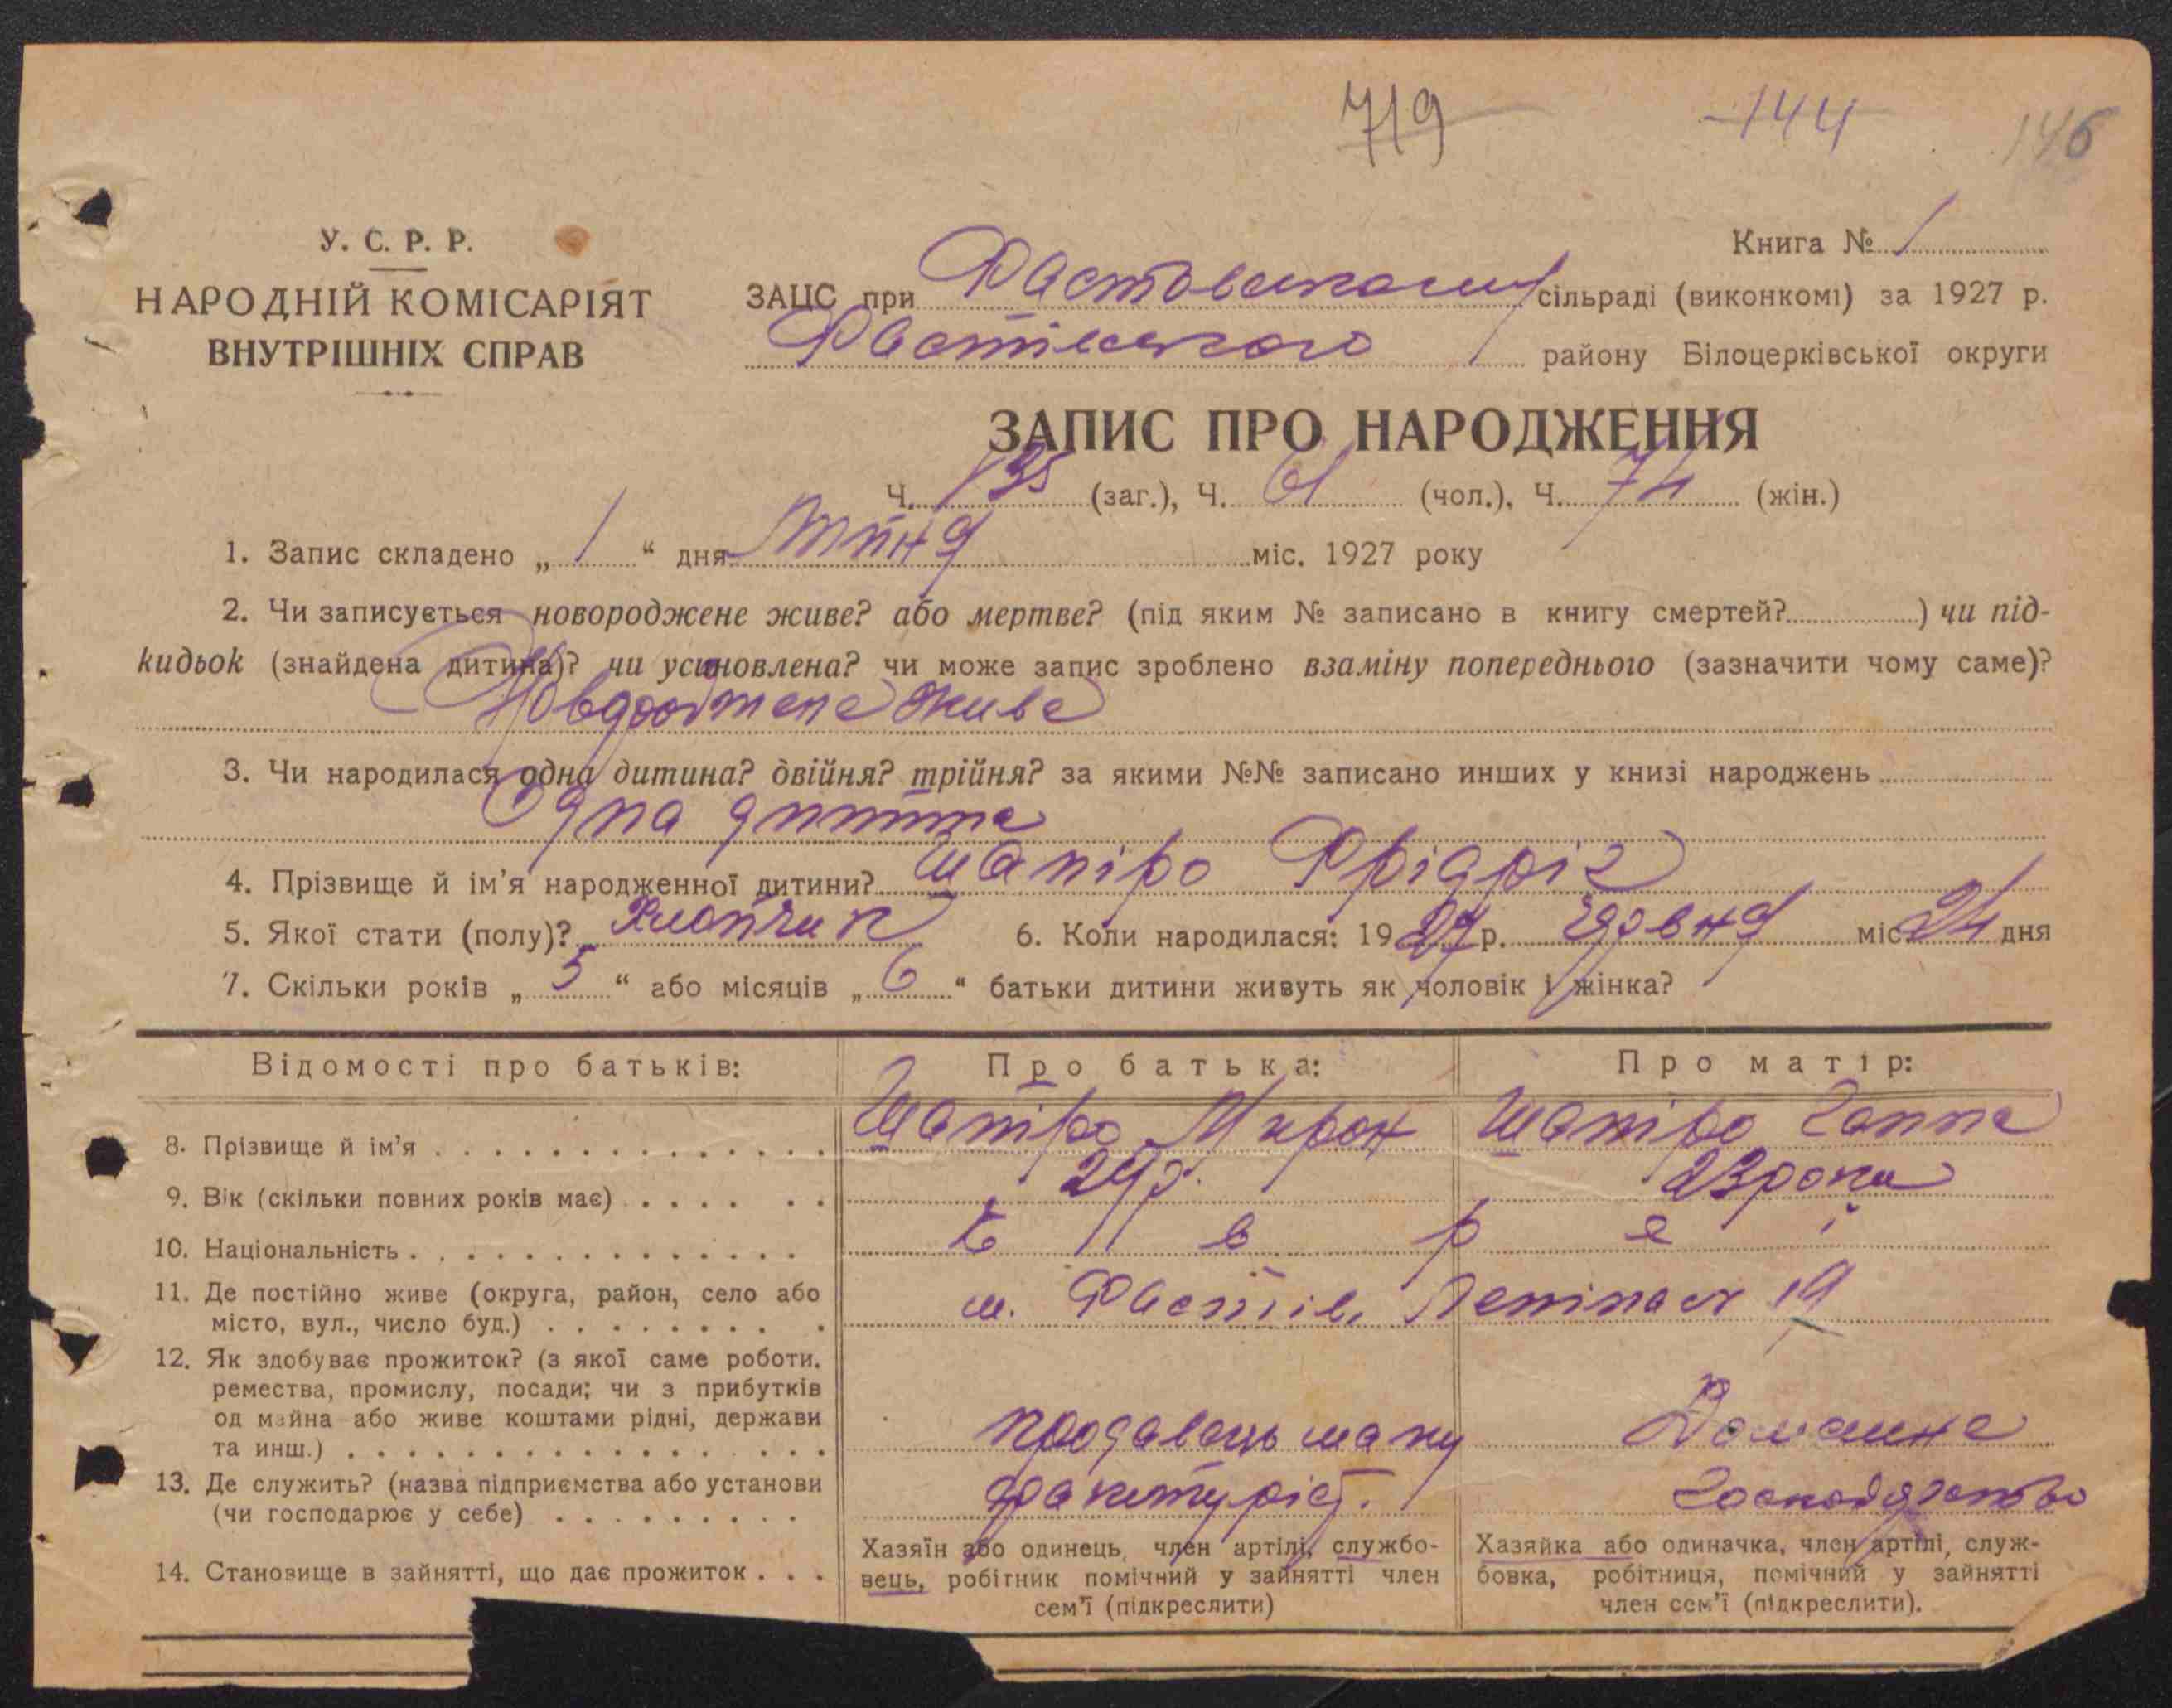 719 144 146
У. С. Р. Р.
НАРОДНІЙ КОМІСАРІЯТ
ВНУТРІШНІХ СПРАВ
Книга № 1
ЗАЦС при сільраді (виконкомі) за 1927 р.
Фастівського району Білоцерківської округи
ЗАПИС ПРО НАРОДЖЕННЯ
Ч. 135 (заг.), Ч. 61 (чол.), Ч. 74 (жін.)
1. Запис складено „ 1 “ дня міс. 1927 року
2. Чи записується новороджене живе? або мертве? (під яким № записано в книгу смертей? ) чи під-
кидьок (знайдена дитина)? чи усиновлена? чи може запис зроблено взаміну попереднього (зазначити чому саме)?
живе
3. Чи народилася одна дитина? двійня? трійня? за якими №№ записано инших у книзі народжень
Одна дитина
4. Прізвище й ім’я народженної дитини? Шапіро Фрідріг
5. Якої стати (полу)? Хлопчик 6. Коли народилася: 1927 р. Червня міс. 24 дня
7. Скільки років „ 5 “ або місяців „ 6 “ батьки дитини живуть як чоловік і жінка?
Відомості про батьків: Про батька: Про матір:
8. Прізвище й ім’я Шапіро Мирон Шапіро Ганна
9. Вік (скільки повних років має) 29 р. 23 роки
10. Національність Євреї
11. Де постійно живе (округа, район, село або
місто, вул., число буд.) м. Фастів, 19
12. Як здобуває прожиток? (з якої саме роботи,
ремества, промислу, посади; чи з прибутків
од майна або живе коштами рідні, держави
та инш.) продавець ману Домашнє
13. Де служить? (назва підприємства або установи фактуріст. Господарство
(чи господарює у себе)
14. Становище в зайнятті, що дає прожиток
Хазяїн або одинець, член артілі, службо-
вець, робітник помічний у зайнятті член
сем’ї (підкреслити)
Хазяйка або одиначка, член артілі, служ-
бовка, робітниця, помічний у зайнятті
член сем’ї (підкреслити).